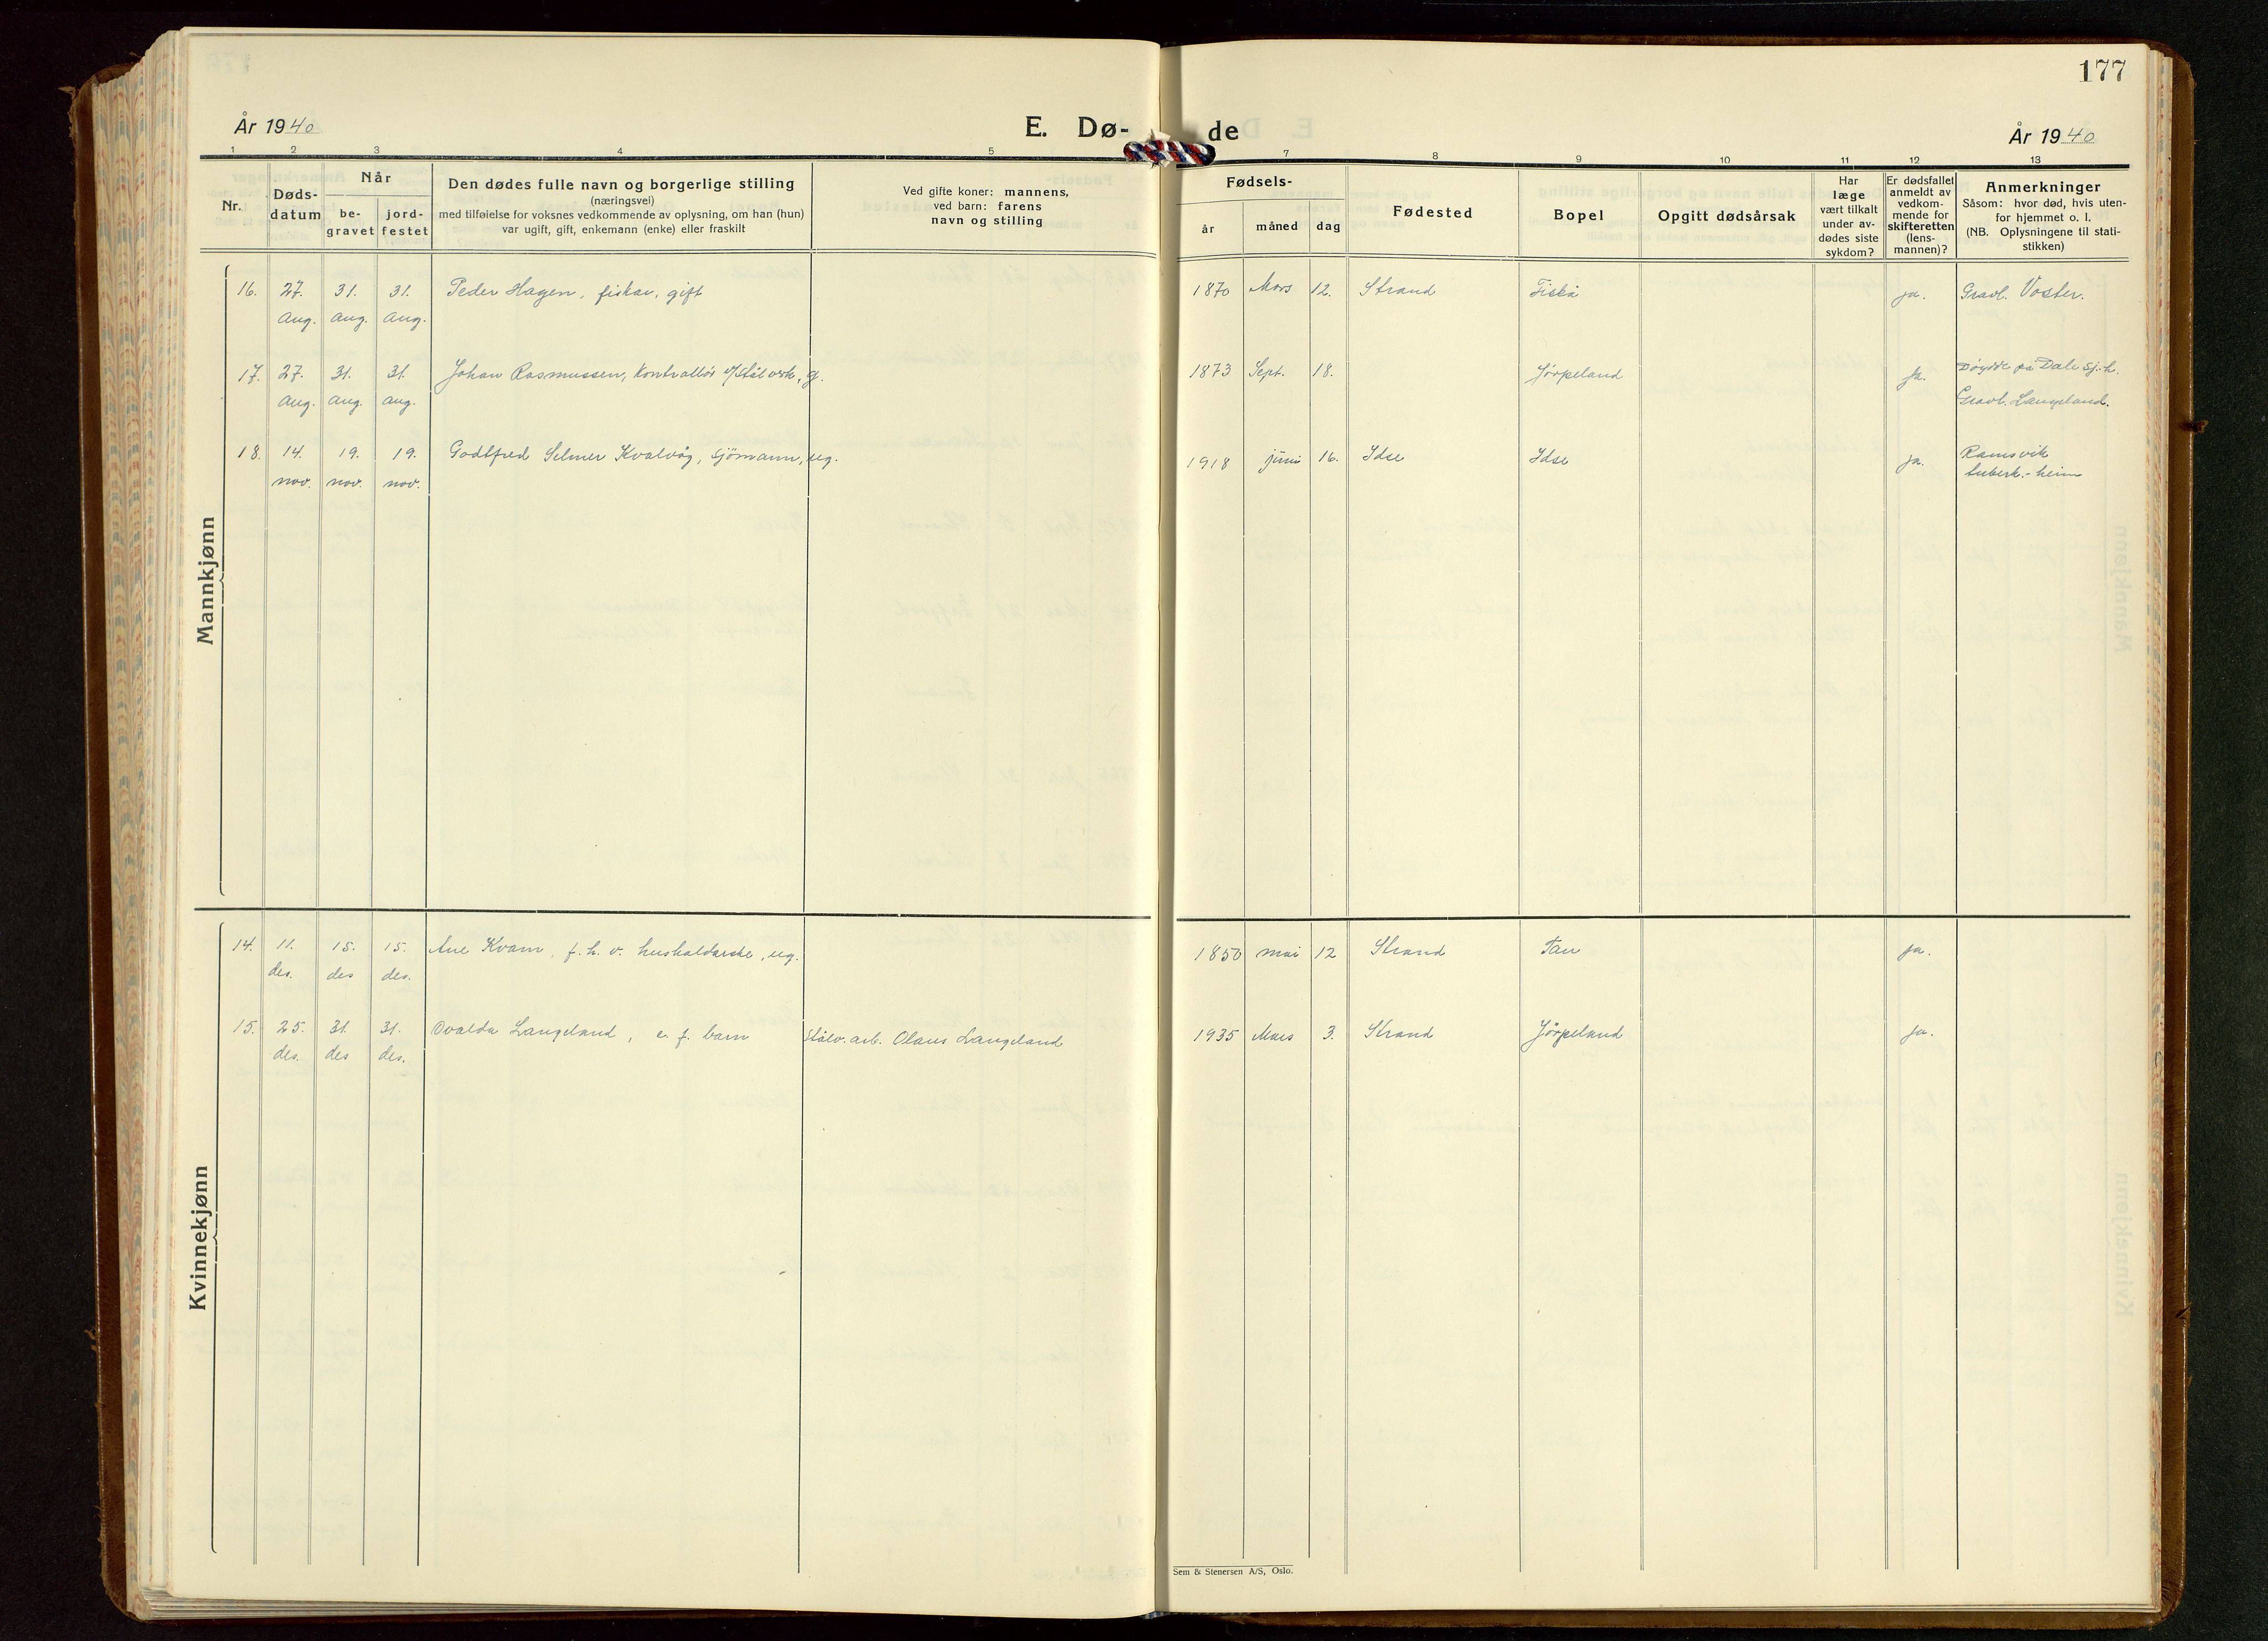 177
År 1940
E. Dø-
de
År 1940
1 2 3 4 5 7 8 9 10 11 12 13
Nr.
Døds-
datum
Når
be-
gravet
jord-
festet
Den dødes fulle navn og borgerlige stilling
(næringsvei)
med tilføielse for voksnes vedkommende av oplysning, om han (hun)
var ugift, gift, enkemann (enke) eller fraskilt
Ved gifte koner: mannens,
ved barn: farens
navn og stilling
Fødsels-
år måned dag
Fødested
Bopel
Opgitt dødsårsak
Har
læge
vært tilkalt
under av-
dødes siste
sykdom?
Er dødsfallet
anmeldt av
vedkom-
mende for
skifteretten
(lens-
mannen)?
Anmerkninger
Såsom: hvor død, hvis uten-
for hjemmet o. l.
(NB. Oplysningene til stati-
stikken)
Mannkjønn
16. 27. 31. 31. Peder Hagen, fiskar, gift 1870 Mars 12. Strand Fiskå ja. Gravl. Voster.
aug. aug. aug.
17. 27. 31. 31. Johan Rasmussen, kontrollör v/stålverk, g. 1873 Sept. 18. Jörpeland ja. Döydde på Dale sj.h.
aug. aug. aug. Gravl. Langeland.
18. 14. 19. 19. Godtfred Selmer Kvalvåg, sjömann, ug. 1918 juni 16. Idse Idse ja. Ramsvik
nov. nov. nov. tuberk.-heim
Kvinnekjønn
14. 11. 15. 15. Ane Kvam, f. h. v. hushaldarske, ug. 1850 mai 12 Strand Tau ja.
des. des des.
15. 25. 31. 31. Ovalda Langeland, e. f. barn Stålv. arb. Olaus Langeland 1935 Mars 3. Strand Jörpeland ja.
des. des des.
Sem & Stenersen A/S, Oslo.